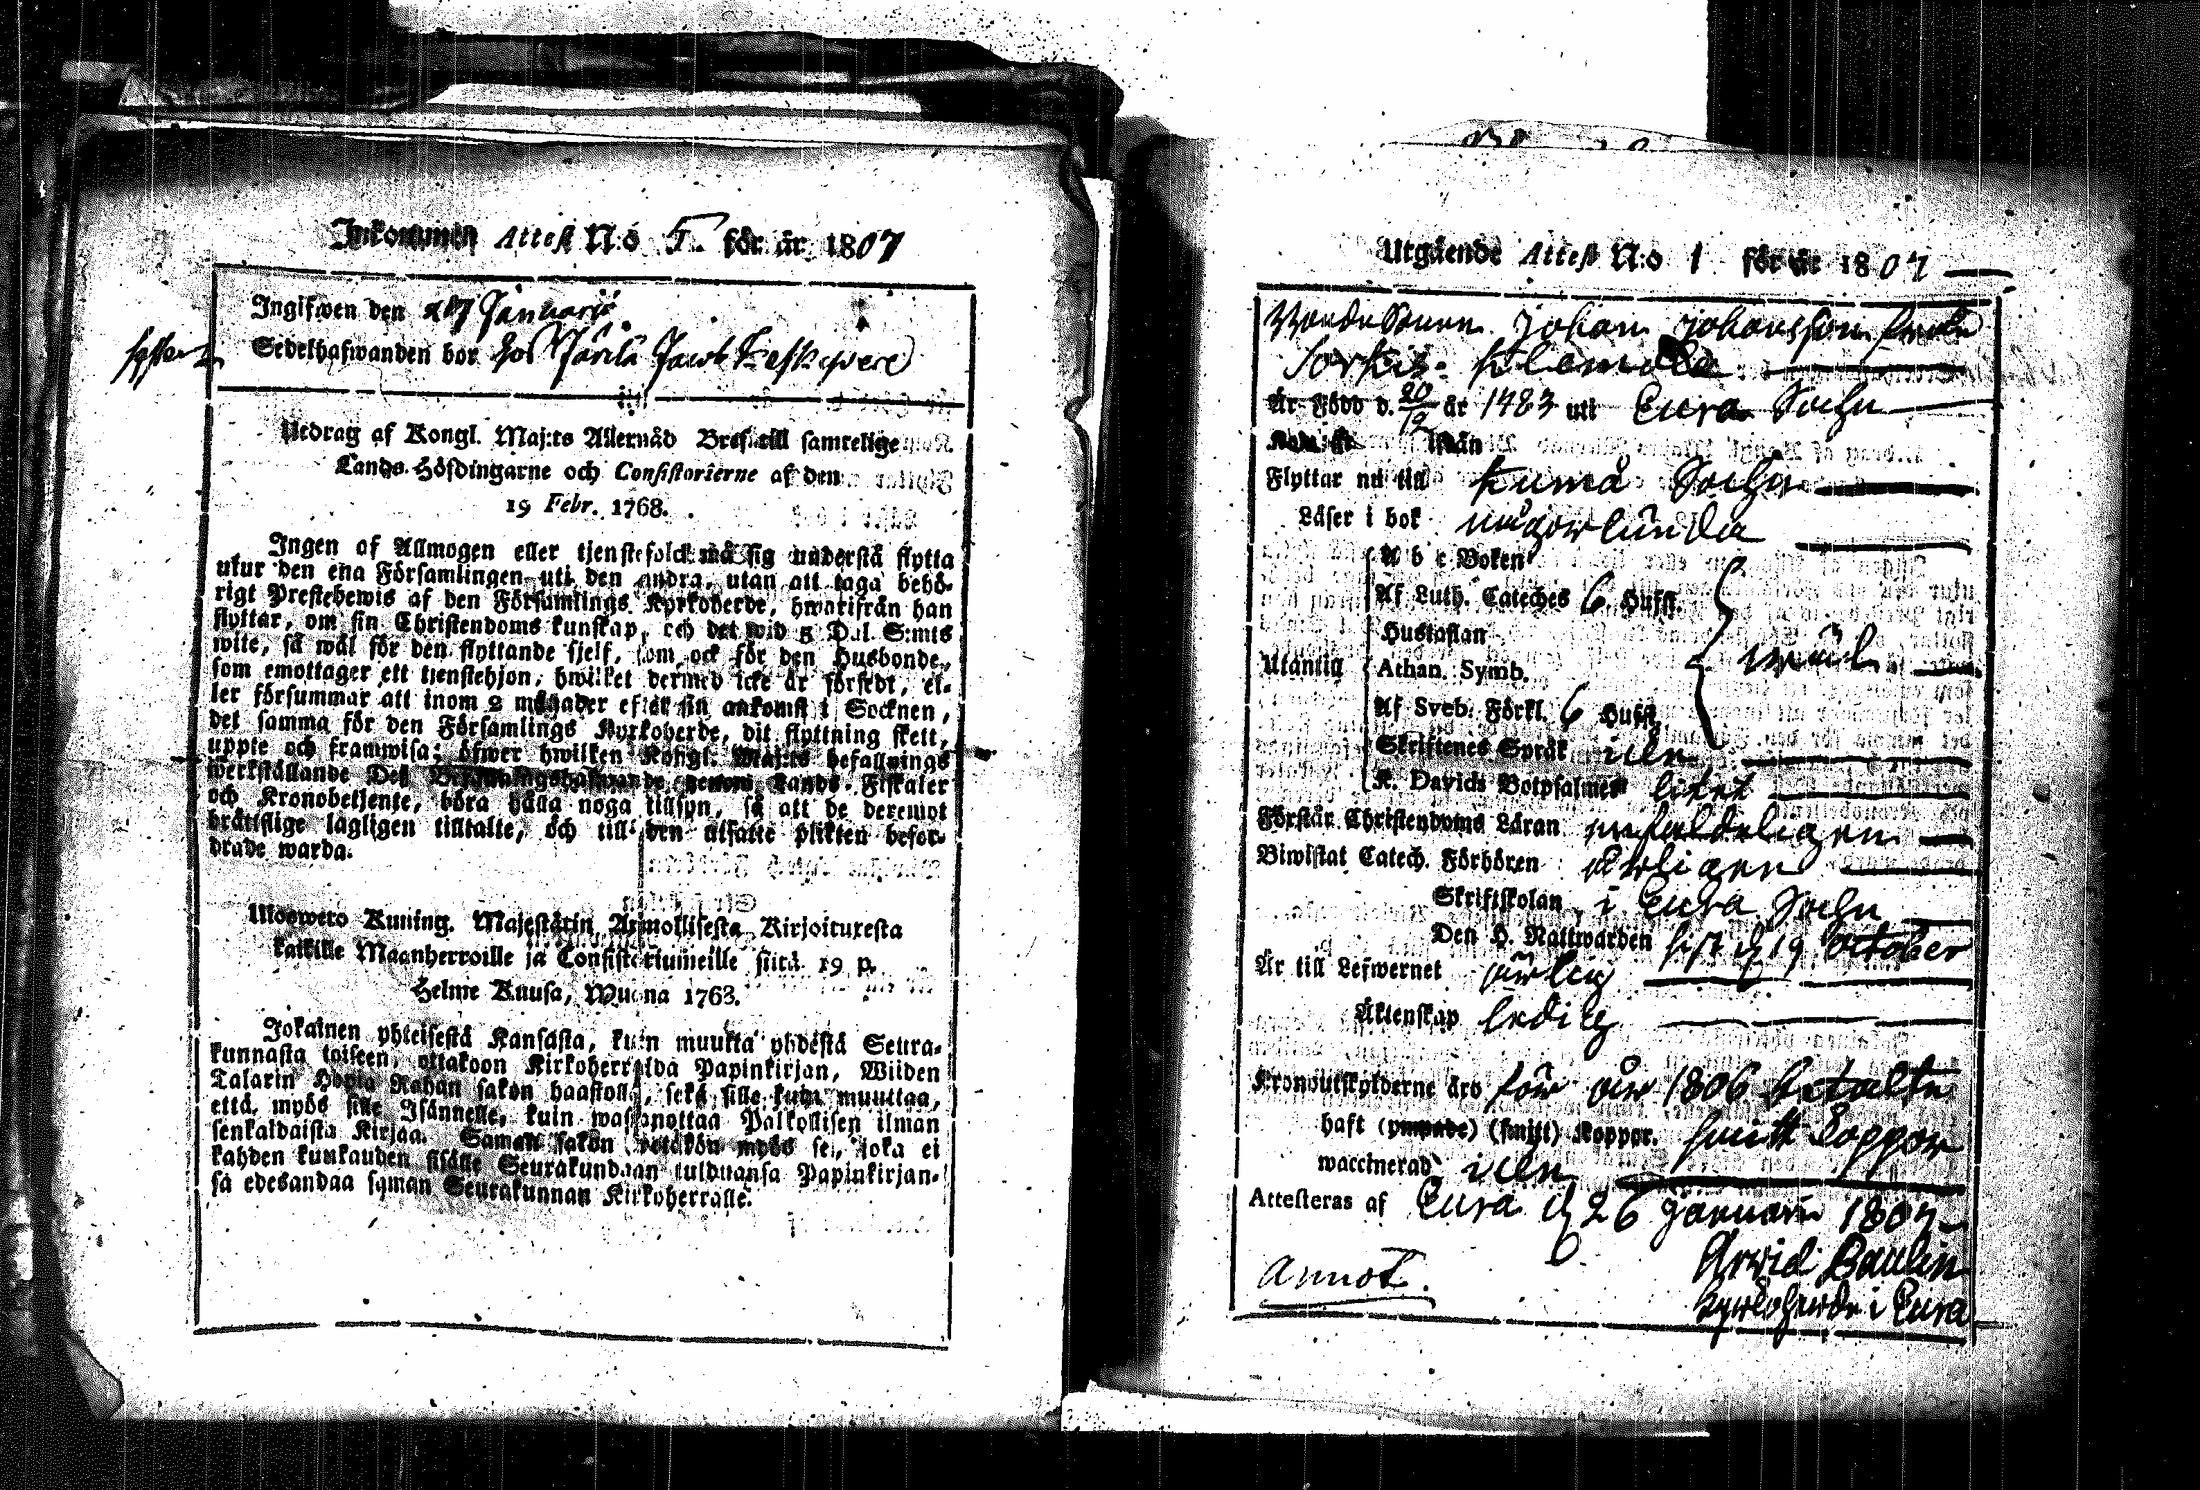 Inkommen Attest N:o 5. för år 1807
Ingifwen den 27 Januarii
Sedelhafwanden bor hos Jacob
Utdrag af Kongl. Maj:ts Allernåd Bref till samtelige
Lands-Höfdingarne och Consistorierne af den
19 Febr. 1768.
Ingen af Allmogen eller tjenstefolck må sig understå flytta
utur den ena Församlingen uti den andra, utan att taga behö-
rigt Prestebewis af den Församlings Kyrkoherde, hwarifrån han
flyttar, om sin Christendoms kunskap, och det wid 5 Dal. S:mts
wite, så wäl för den flyttande sjelf, som ock för den Husbonde,
som emottager ett tjenstehjon, hwilket dermed icke är försedt, el-
ler försummar att inom 2 månader efter sin ankomst i Socknen,
det samma för den Församlings Kyrkoherde, dit flyttning skett,
uppte och framwisa; öfwer hwilken Kongl. Maj:ts befallnings
werkställande Des Befallningshafwande, genom Lands-Fiskaler
och Kronobetjente, böra hålla noga tillsyn, så att de deremot
brätslige lagligen tilltalte, och till den utsatte plikten befor-
drade warda.
Uloswето Kuning. Majestätin Armollisesta Kirjoituxesta
kaikille Maanherroille ja Consistoriumeille siitä 19 p.
Helme Kuusa, Wuonna 1763.
Jokainen yhteisestä Kansasta, kuin muutta yhdestä Seura-
kunnasta toiseen, ottakoon Kirkoherralda Papinkirjan, Wiiden
Talarin Hopia Rahan sakon haastolla, sekä sille kuin muuttaa,
että myös sille Isännelle, kuin wastanottaa Palkollisen ilman
senkaldaista Kirjaa. Saman sakon wetäkön myös se, joka ei
kahden kuukauden sisälle Seurakundaan tulduansa Papinkirjan-
sa edesandaa saman Seurakunnan Kirkoherralle.
Utgående Attest N:o 1 för år 1807
Johan Johansson från
Sorkis
Är Född d. 20/12 år 1783 uti Eura Sochn
Flyttar nu till Kumå Sochn
Läser i bok någorlunda
A b c Boken
Af Luth. Cateches 6 Hufst.
Hustaflan
Utantig Athan. Symb. wäl
Af Sveb. Förkl. 6 Hufst.
Skriftenes Språk icke
K. Davids Botpsalmer litet
Förstår Christendoms Läran enfaldeligen
Biwistat Catech. Förhören årligen
Skriftskolan i Eura Sochn
Den H. Nattwarden sist d 19 October
Är till Lefwernet ärlig
Äktenskap ledig
Kronoutskylderne äro för år 1806 betalte
haft (ympade) (smitt) Koppor. smitt Koppor
waccinerad icke
Attesteras af Eura d 26 Januari 1807
Arwid Paulin
Kyrkoherde i Eura
Annot.